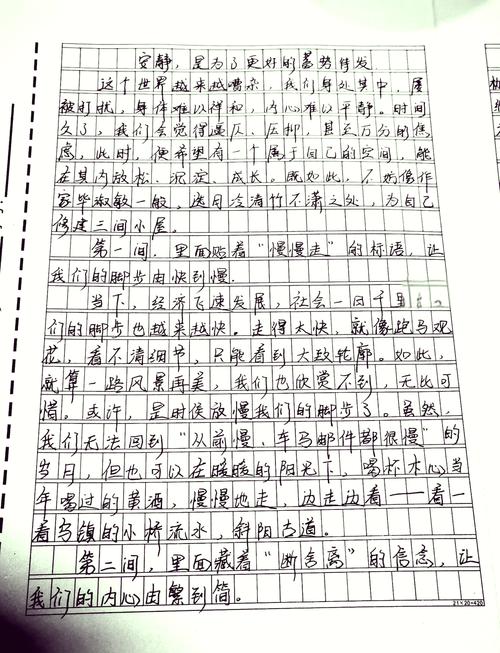 安静，是为了更好的蓄势待发
这个世界越来越嘈杂，我们身处其中，屡
被打扰，身体难以祥和，内心难以平静。时间
久了，我们会觉得疲仄、压抑，甚至万分的焦
虑，此时，便希望有一个属于自己的空间，能
在其内放松、沉淀、成长。既如此，不妨像作
家毕淑敏一般，选月冷清竹不潇之处，为自己
修建三间小屋。
第一间，里面贴着“慢慢走”的标语，让
我们的脚步由快到慢.
当下，经济飞速发展，社会一日千里
们的脚步也越来越快。走得太快，就像跑马观
花，看不清细节，只能看到大致轮廓。如此，
就算一路风景再美，我们也欣赏不到，无比可
惜。或许，是时侯放慢我们的脚步了。虽然，
我们无法回到“从前慢、车马邮件都很慢”的
岁月，但也可以在暖暖的阳光下，喝杯木心当
年喝过的黄酒，慢慢地走，边走边看——看一
看乌镇的小桥流水，斜阳古道。
第二间，里面藏着“断舍离”的信念，让
我们的内心由繁到简。
21×20=420